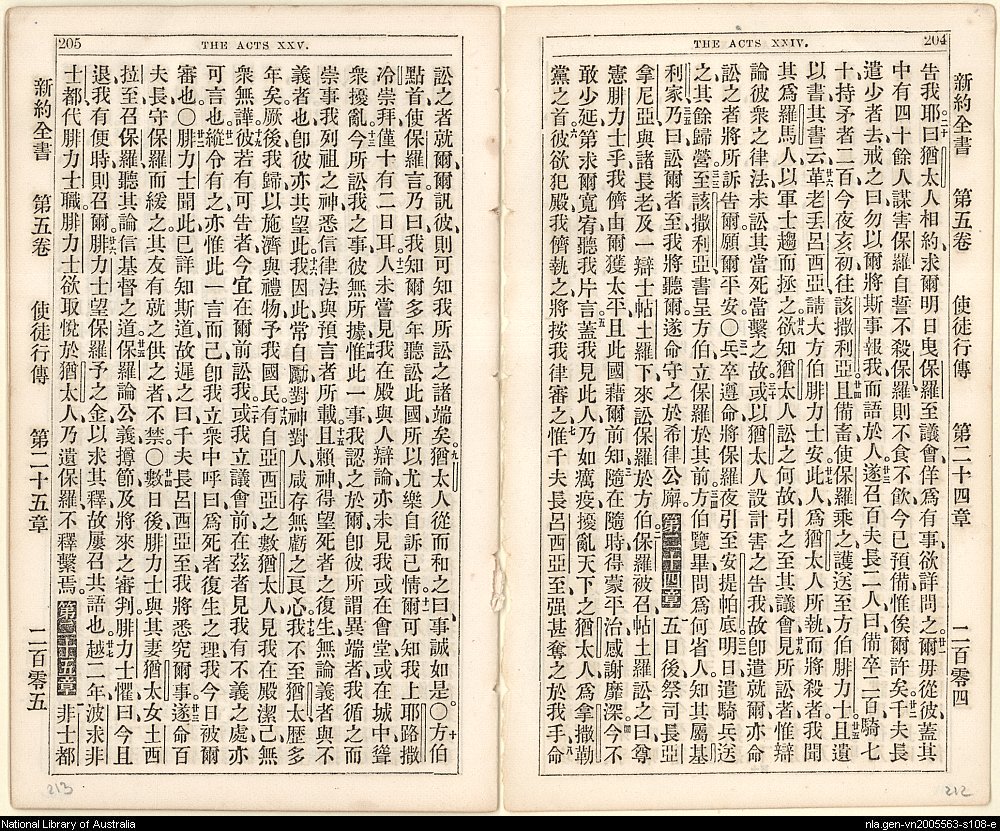 THE ACTS XXIV.
204
新約全書 第五卷 使徒行傳 第二十四章 二百零四
告我耶曰猶太人相約求爾明日曳保羅至議會佯爲有事欲詳問之爾毋從彼蓋其
中有四十餘人謀害保羅自誓不殺保羅則不食不飲今已預備惟俟爾許矣千夫長
遣少者去戒之曰勿以爾將斯事報我而語於人遂召百夫長二人曰備卒二百騎七
十持矛者二百今夜亥初往該撒利亞且備畜使保羅乘之護送至方伯腓力士且遺
以書其書云革老丢呂西亞請大方伯腓力士安此人爲猶太人所執而將殺者我聞
其爲羅馬人以軍士趨而拯之欲知猶太人訟之何故引之至其議會見所訟者惟辯
論彼衆之律法未訟其當死當繫之故或以猶太人設計害之告我故卽遣就爾亦命
訟之者將所訴告爾願爾平安〇兵卒遵命將保羅夜引至安提帕底明日遣騎兵送
之其餘歸營至該撒利亞書呈方伯立保羅於其前方伯覽畢問爲何省人知其屬基
利家乃曰訟爾者至我將聽爾遂命守之於希律公廨第二十四章五日後祭司長亞
拿尼亞與諸長老及一辯士帖土羅下來訟保羅於方伯保羅被召帖土羅訟之曰尊
憲腓力士乎我儕由爾獲太平且此國藉爾前知隨在隨時得蒙平治感謝靡深今不
敢少延第求爾寬宥聽我片言蓋我見此人乃如癘疫擾亂天下之猶太人爲拿撒勒
黨之首彼欲犯殿我儕執之將按我律審之惟千夫長呂西亞至强甚奪之於我手命
THE ACTS XXV.
205
訟之者就爾爾訊彼則可知我所訟之諸端矣猶太人從而和之曰事誠如是〇方伯
點首使保羅言乃曰我知爾多年聽訟此國所以尤樂自訴已情爾可知我上耶路撒
冷崇拜僅十有二日耳人未嘗見我在殿與人辯論亦未見我或在會堂或在城中聳
衆擾亂今所訟我之事彼無所據惟此一事我認之於爾卽彼所謂異端者我循之而
崇事我列祖之神悉信律法與預言者所載且賴神得望死者之復生無論義者與不
義者也卽彼亦共望此我因此常自勵對神對人咸存無虧之良心我不至猶太歷多
年矣厥後我歸以施濟與禮物予我國民有自亞西亞之數猶太人見我在殿潔己無
衆無譁彼若有可告者今宜在爾前訟我或我立議會前在茲者見我有不義之處亦
可言也縱分有之亦惟此一言而已卽我立衆中呼曰爲死者復生之理我今日被爾
審也〇腓力士聞此已詳知斯道故遲之曰千夫長呂西亞至我將悉究爾事遂命百
夫長守保羅而緩之其友有就之供之者不禁〇數日後腓力士與其妻猶太女土西
拉至召保羅聽其論信基督之道保羅論公義撙節及將來之審判腓力士懼曰今且
退我有便時則召爾腓力士望保羅予之金以求其釋故屢召共語也越二年波求非
士都代腓力士職腓力士欲取悅於猶太人乃遺保羅不釋繫焉第二十五章非士都
新約全書 第五卷 使徒行傳 第二十五章 二百零五
213
212
National Library of Australia
nla.gen-vn2005563-s108-e